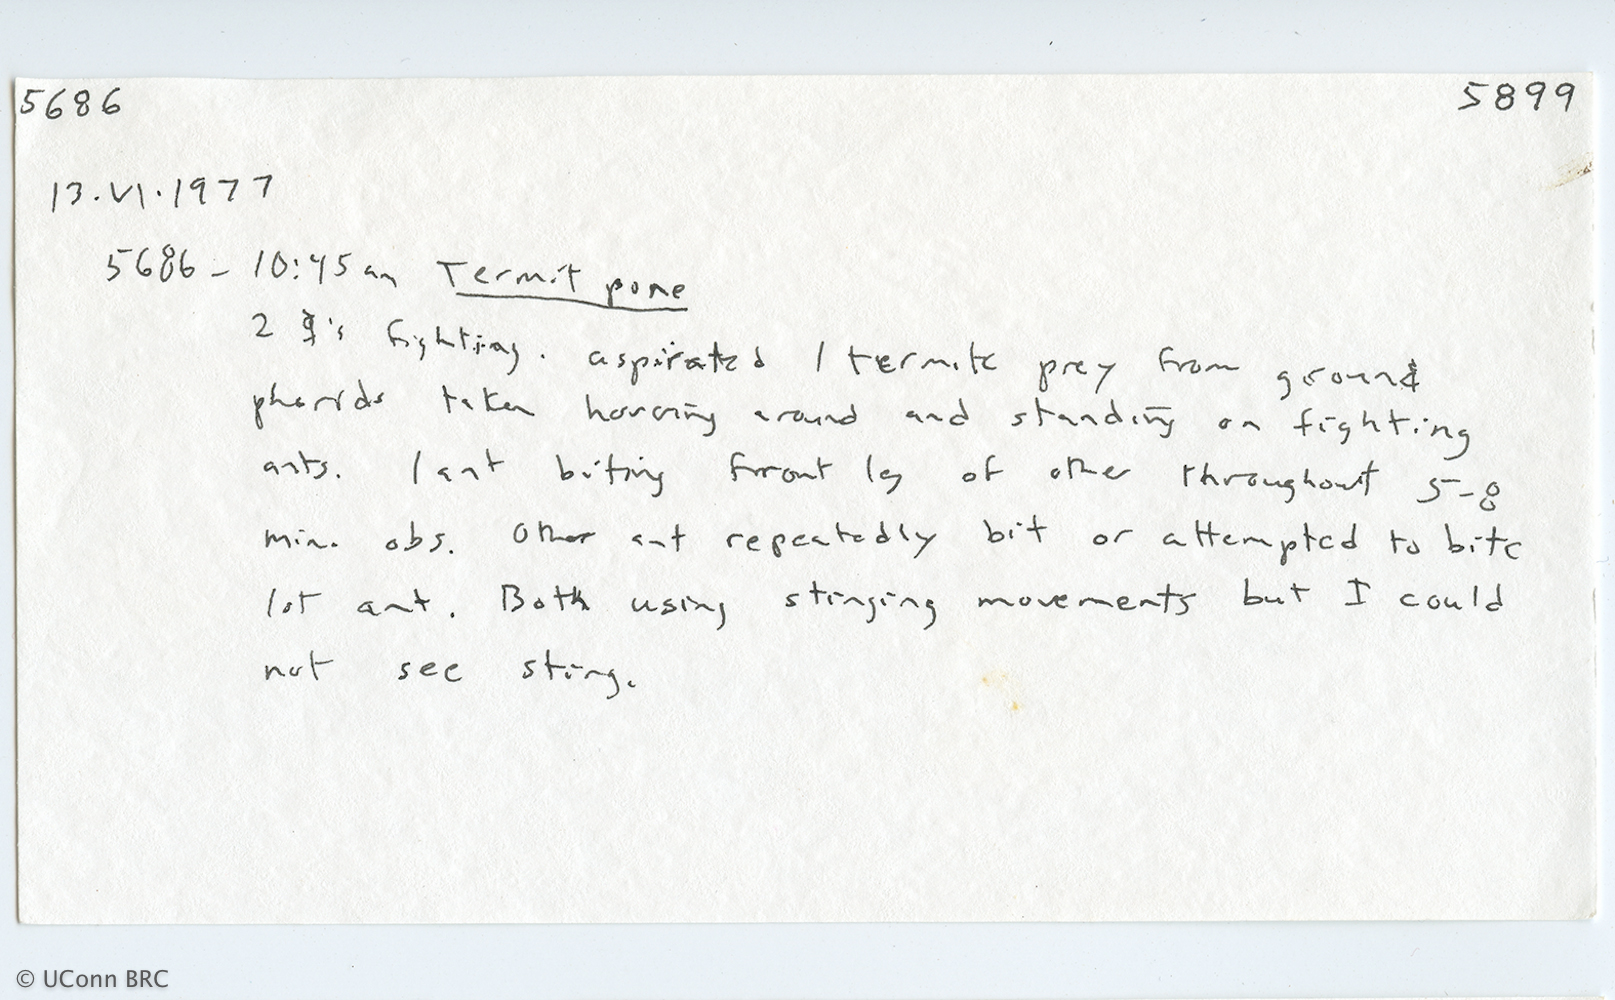 5686 5899
13.VI.1977
5686 - 10:45 am Termit pone
2 ☿'s fighting. aspirated 1 termite prey from ground
phorids taken hovering around and standing on fighting
ants. 1 ant biting front leg of other throughout 5-8
min. obs. Other ant repeatedly bit or attempted to bite
1st ant. Both using stinging movements but I could
not see sting.
© UConn BRC